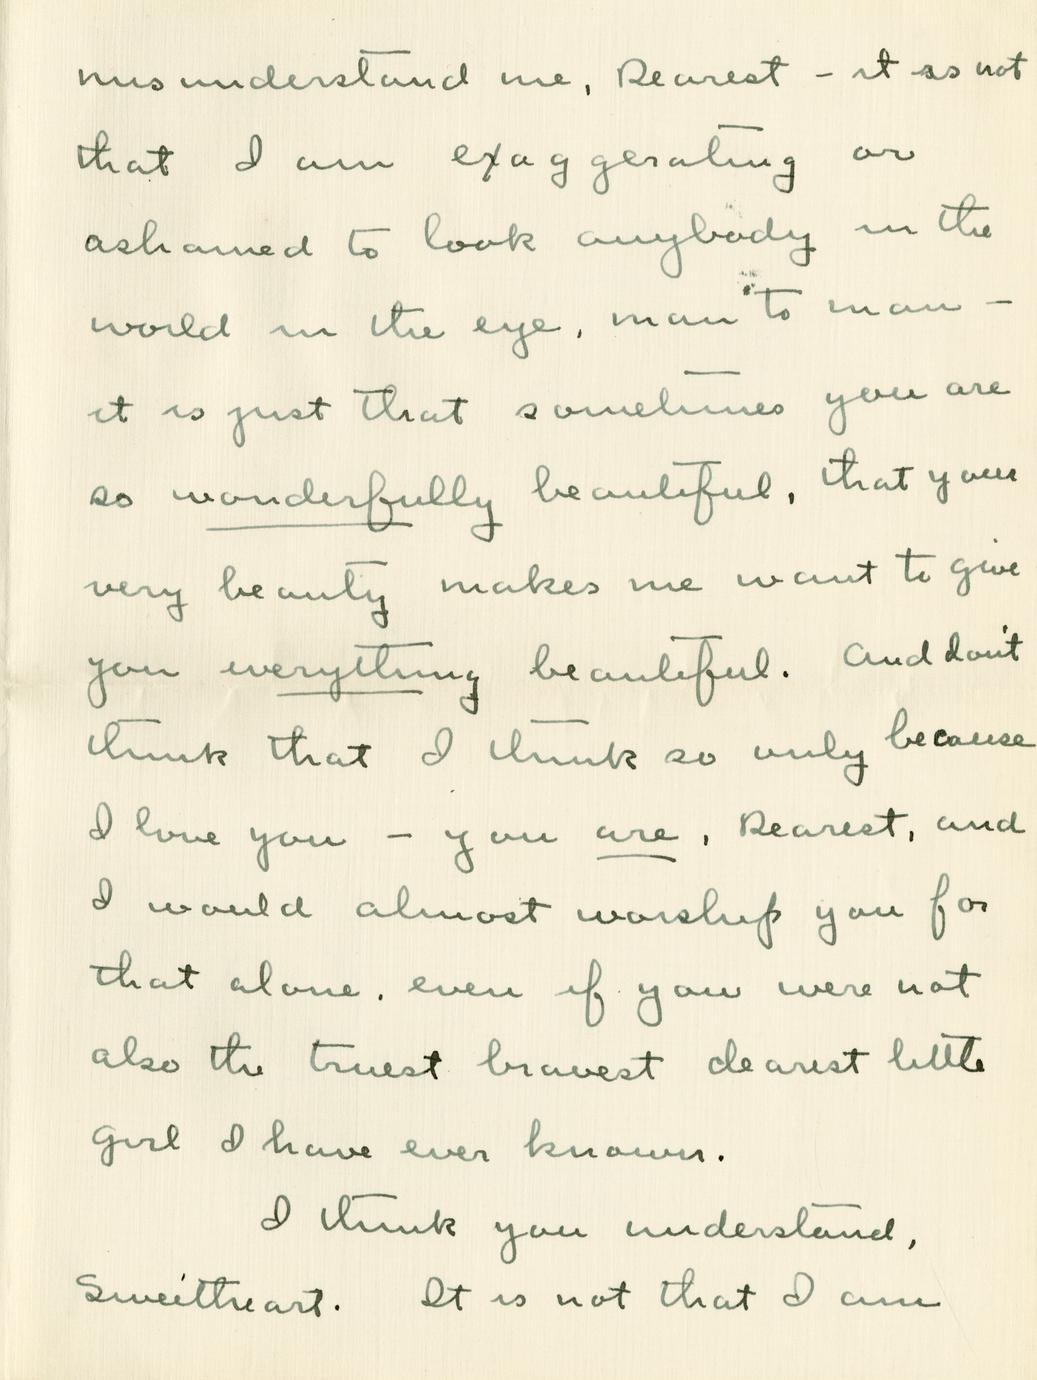 misunderstand me, Dearest - it is not
that I am exaggerating or
ashamed to look anybody in the
world in the eye, man to man -
it is just that sometimes you are
so wonderfully beautiful, that your
very beauty makes me want to give
you everything beautiful. And don't
think that I think so only because
I love you - you are, Dearest, and
I would almost worship you for
that alone, even if you were not
also the truest bravest dearest little
girl I have ever known.
I think you understand,
Sweetheart. It is not that I am